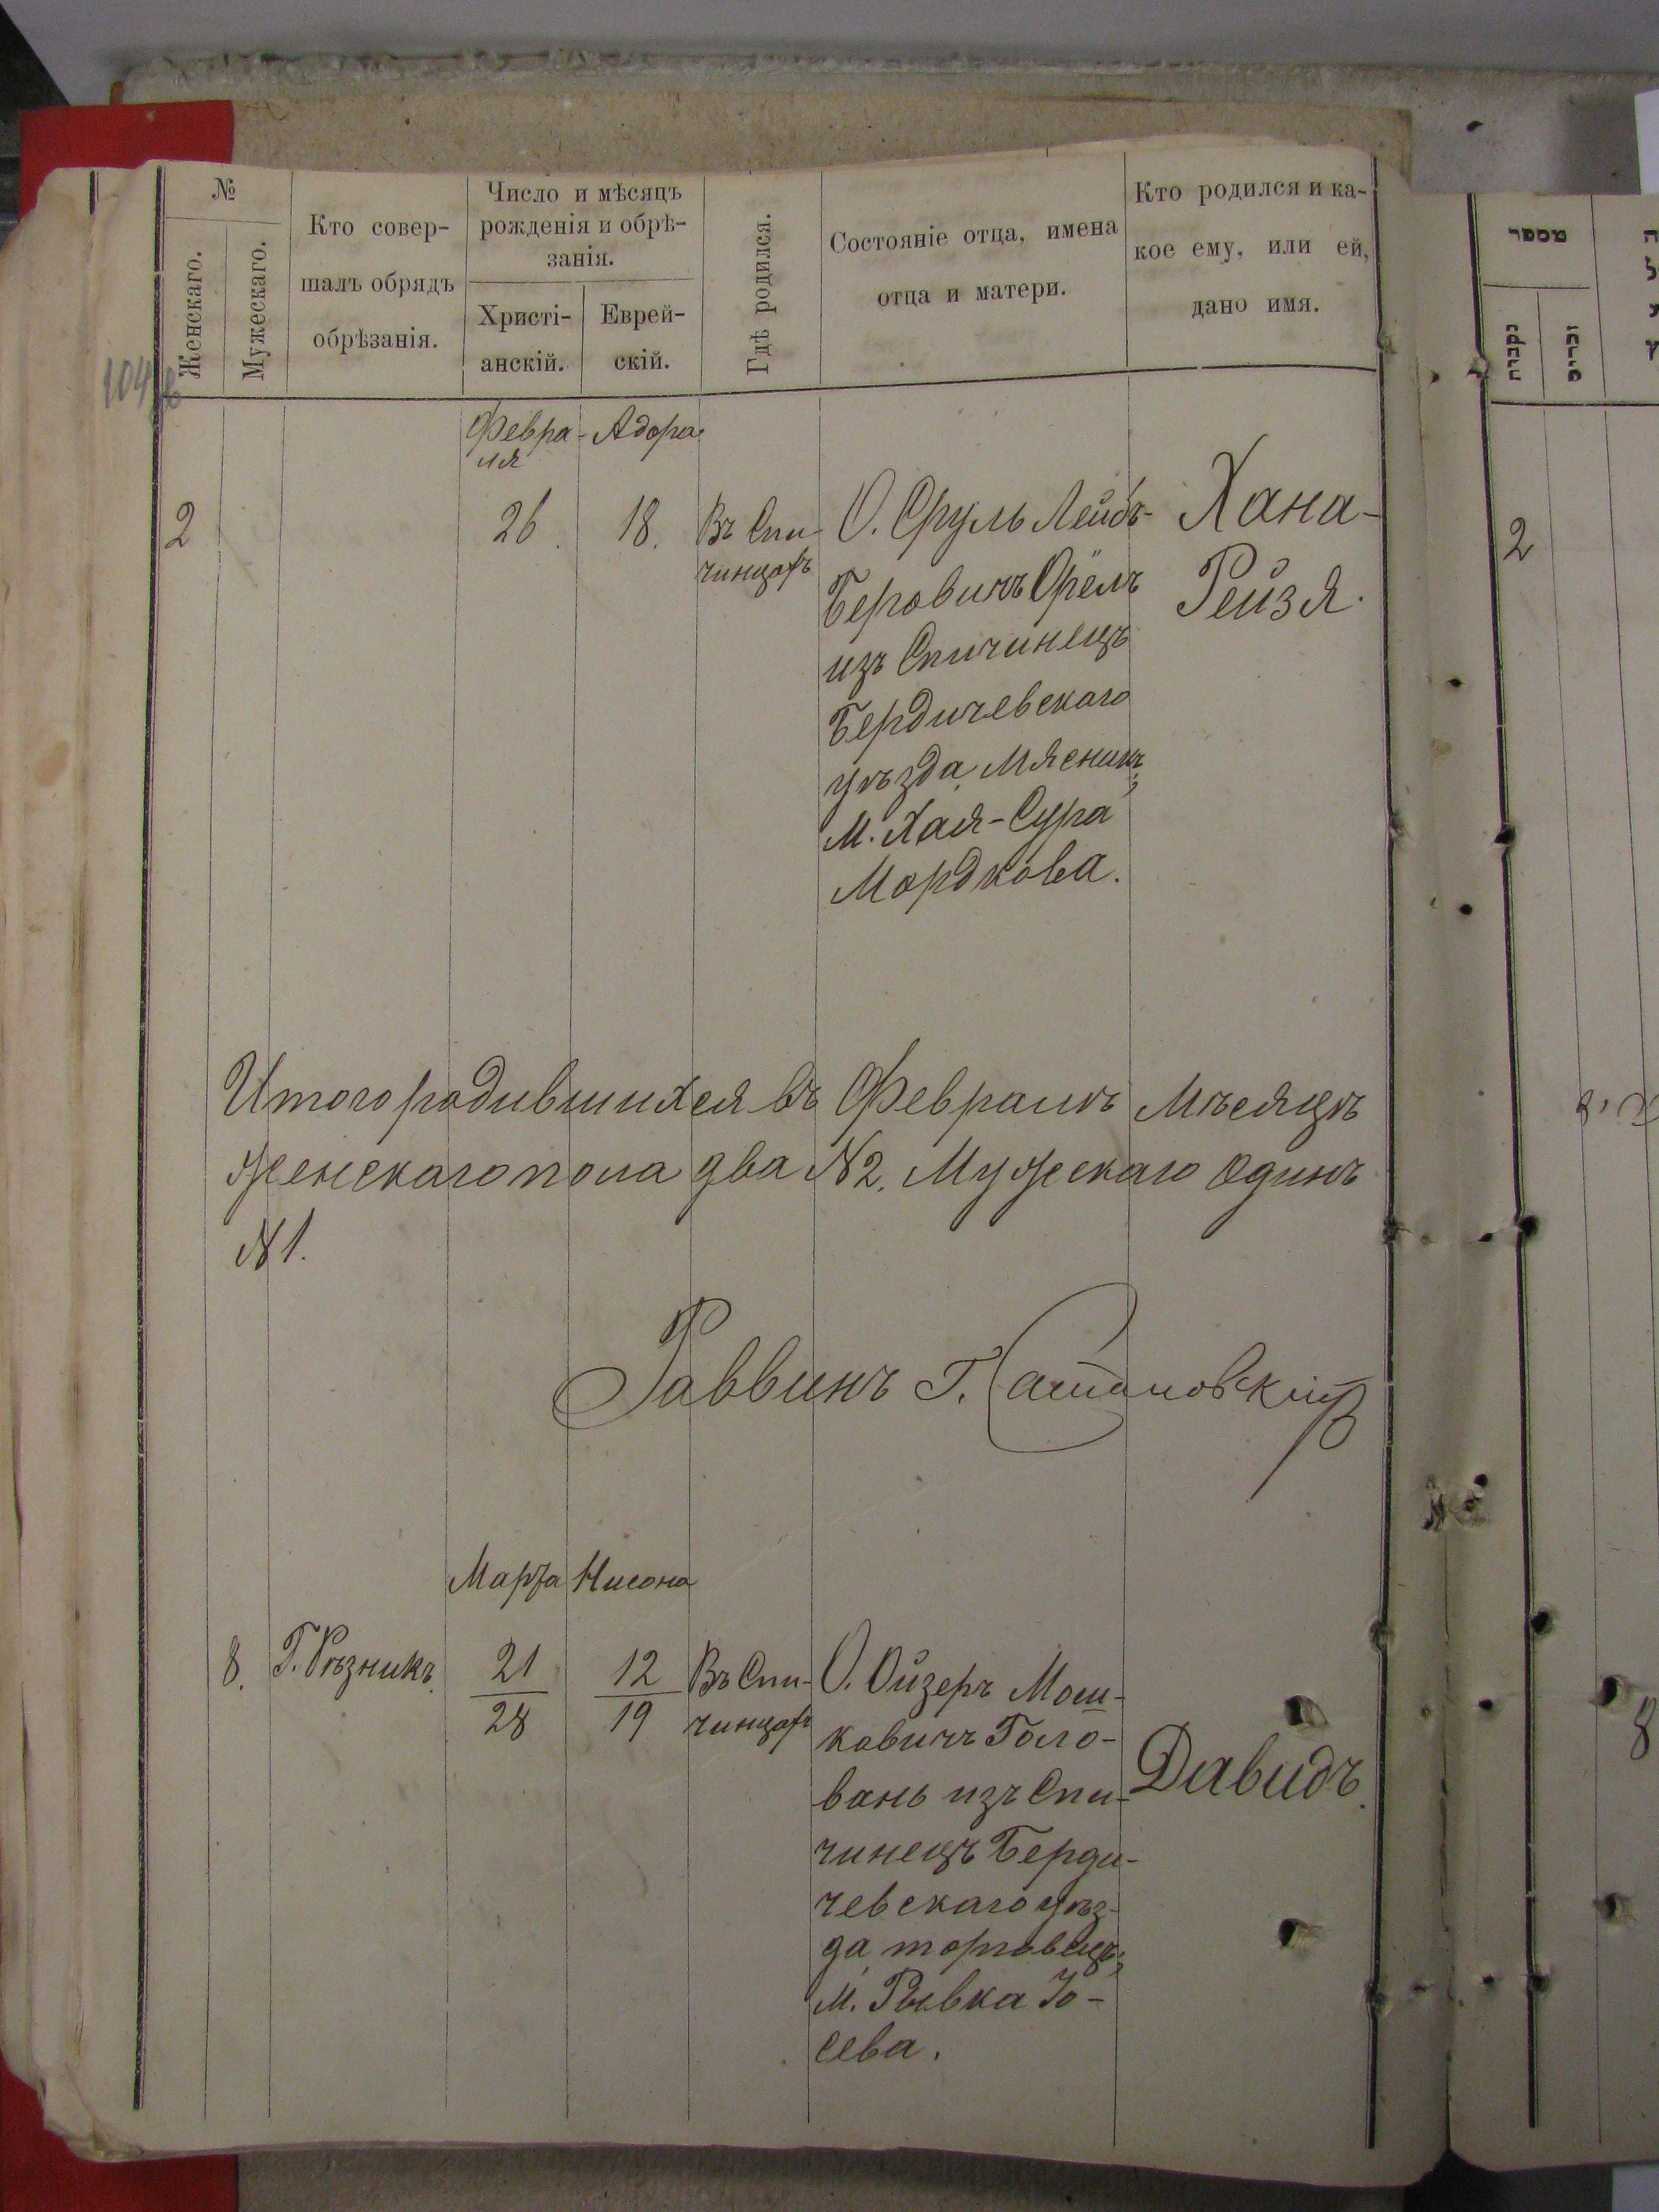 №
Женскаго.
Мужескаго.
Кто совер-
шалъ обрядъ
обрѣзанія.
Число и мѣсяцъ
рожденія и обрѣ-
занія.
Христі-
анскій.
Еврей-
скій.
Гдѣ родился.
Состояніе отца, имена
отца и матери.
Кто родился и ка-
кое ему, или ей,
дано имя.
Февра-
ля
Адора
2
26.
18.
Въ Спи-
чинцахъ
О. Сруль Лейбъ-
Беровичъ Орёлъ
изъ Спичинецъ
Бердичевскаго
уѣзда, Мясникъ,
М. Хая-Сура
Мордкова.
Хана-
Рейзя.
Итого родившихся въ Февралѣ Мѣсяцѣ
женскаго пола два №2. Мужескаго Одинъ
№1.
Раввинъ Г.
Марта Нисона
8.
Г. Рѣзникъ.
21
28
12
19
Въ Спи-
чинцахъ
О. Ойзеръ Мош-
ковичъ Голо-
вань изъ Спи-
чинецъ Берди-
чевскаго уѣз-
да, торговецъ;
М. Рывка Іо-
сева.
Давидъ.
מספר
נקבות
זכרים
2
8